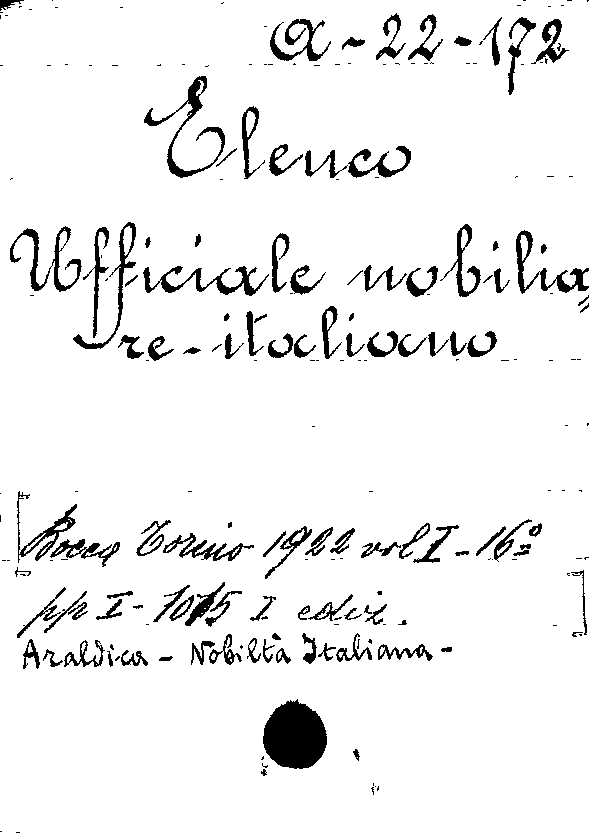 A-22-172
Elenco
Ufficiale nobilia=
re-italiano
Bocca Torino 1922 vol I - 16º
pp I - 1015 I ediz.
Araldica - Nobiltà Italiana -